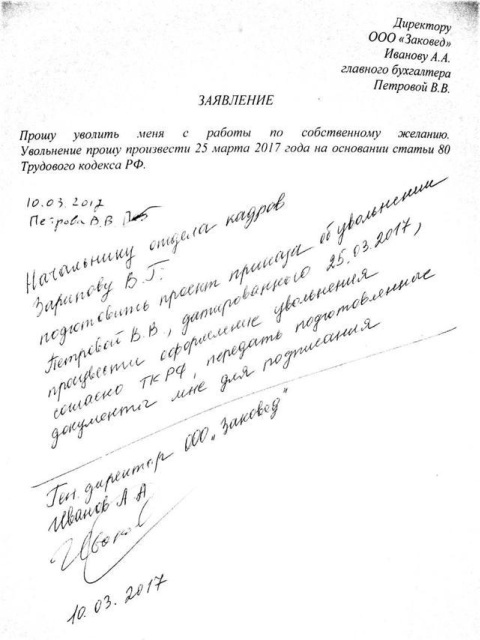 Директору
ООО «Заковед»
Иванову А.А.
главного бухгалтера
Петровой В.В.
ЗАЯВЛЕНИЕ
Прошу уволить меня с работы по собственному желанию.
Увольнение прошу произвести 25 марта 2017 года на основании статьи 80
Трудового кодекса РФ.
10.03.2017
Петрова В.В
Начальнику отдела кадров
Зарипову В.Г.
подготовить проект приказа об увольнении
Петровой В.В., датированного 25.03.2017,
произвести оформление увольнения
согласно ТК РФ, передать подготовленные
документы мне для подписания
Ген. директор ООО „Заковед"
Иванов А А
Иванов
10.03.2017